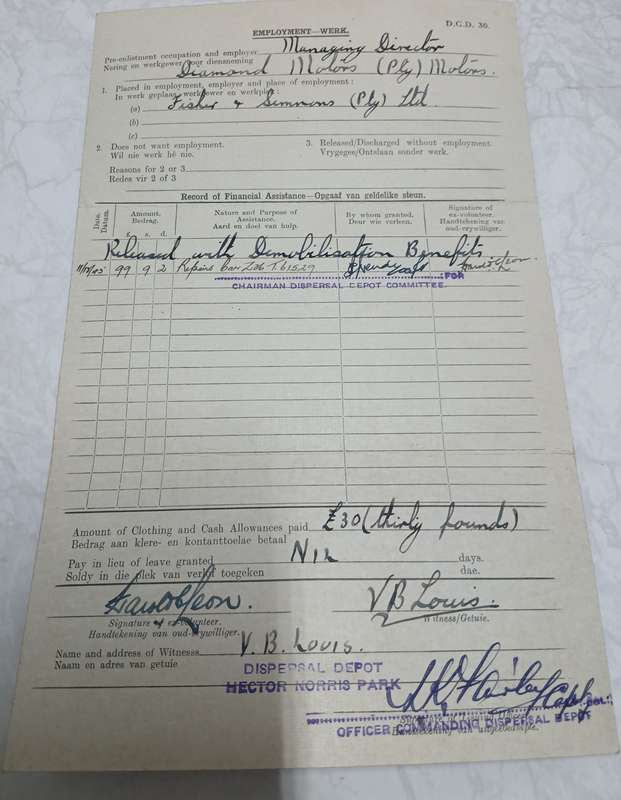 D.C.D. 30.
EMPLOYMENT—WERK.
Pre-enlistment occupation and employer Managing Director
Nering en werkgewer voor diensneming Diamond Motors (Pty) Motors.
1. Placed in employment, employer and place of employment:
In werk geplaas, werkgewer en werkplek:
(a) Fisher & Simmons (Pty) Ltd.
(b)
(c)
2. Does not want employment.
Wil nie werk hê nie.
3. Released/Discharged without employment.
Vrygegee/Ontslaan sonder werk.
Reasons for 2 or 3
Redes vir 2 of 3
Record of Financial Assistance—Opgaaf van geldelike steun.
Date. Datum.
Amount. Bedrag.
£ s. d.
Nature and Purpose of Assistance. Aard en doel van hulp.
By whom granted. Deur wie verleen.
Signature of ex-volunteer. Handtekening van oud-vrywilliger.
Released with Demobilisation Benefits
99 9 2 Repairs
FOR
CHAIRMAN DISPERSAL DEPOT COMMITTEE.
Amount of Clothing and Cash Allowances paid £30 (thirty pounds)
Bedrag aan klere- en kontanttoelae betaal
Pay in lieu of leave granted Nil days.
Soldy in die plek van verlof toegeken dae.
V B Louis.
Signature of ex-volunteer. Witness/Getuie.
Handtekening van oud-vrywilliger.
Name and address of Witness V. B. Louis.
Naam en adres van getuie
DISPERSAL DEPOT
HECTOR NORRIS PARK
OFFICER COMMANDING DISPERSAL DEPOT